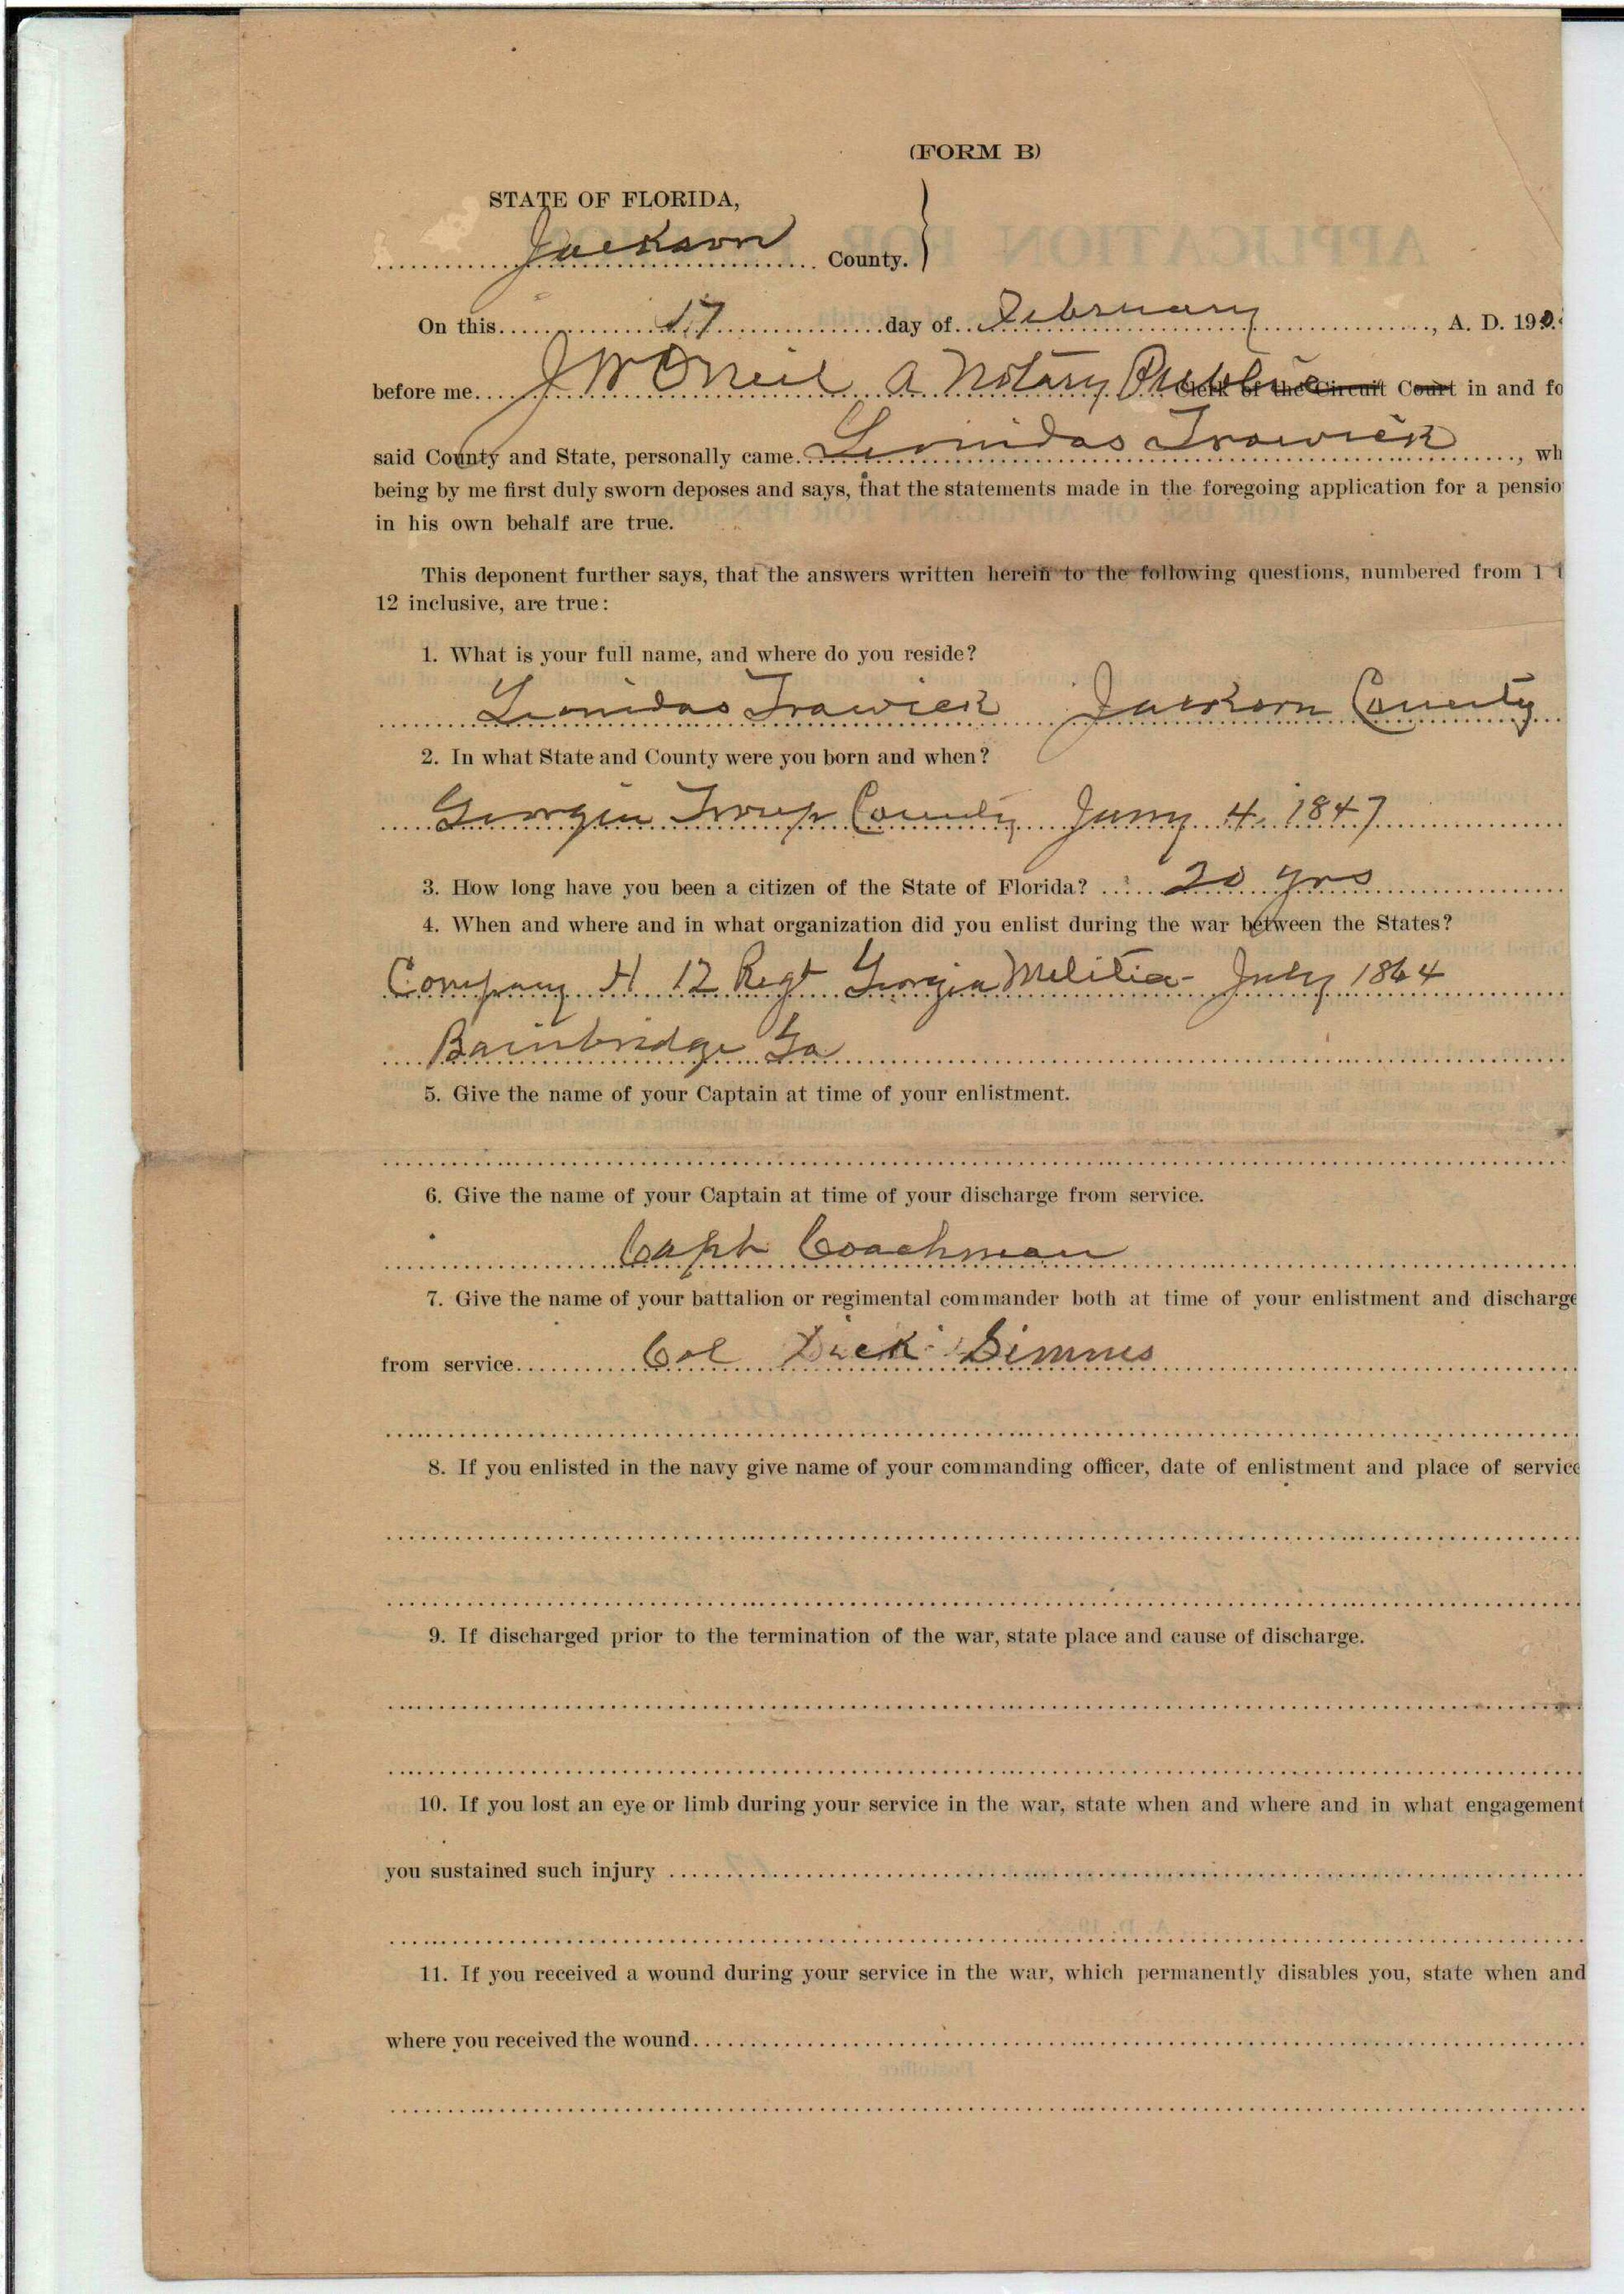 (FORM B)
STATE OF FLORIDA,
Jackson County.
On this 17 day of February, A. D. 190
before me J W ONeil a Notary Public Clerk of the Circuit Court in and fo
said County and State, personally came Leonidas Trawick, wh
being by me first duly sworn deposes and says, that the statements made in the foregoing application for a pensio
in his own behalf are true.
This deponent further says, that the answers written herein to the following questions, numbered from 1 t
12 inclusive, are true:
1. What is your full name, and where do you reside?
Leonidas Trawick Jackson County
2. In what State and County were you born and when?
Georgia Troup County Jany 4. 1847
3. How long have you been a citizen of the State of Florida? 20 yrs
4. When and where and in what organization did you enlist during the war between the States?
Company H 12 Regt Georgia Melitia - July 1864
Bainbridge Ga
5. Give the name of your Captain at time of your enlistment.
6. Give the name of your Captain at time of your discharge from service.
Capt Coachman
7. Give the name of your battalion or regimental commander both at time of your enlistment and discharge
from service Col Dick Simms
8. If you enlisted in the navy give name of your commanding officer, date of enlistment and place of service
9. If discharged prior to the termination of the war, state place and cause of discharge.
10. If you lost an eye or limb during your service in the war, state when and where and in what engagement
you sustained such injury
11. If you received a wound during your service in the war, which permanently disables you, state when and
where you received the wound